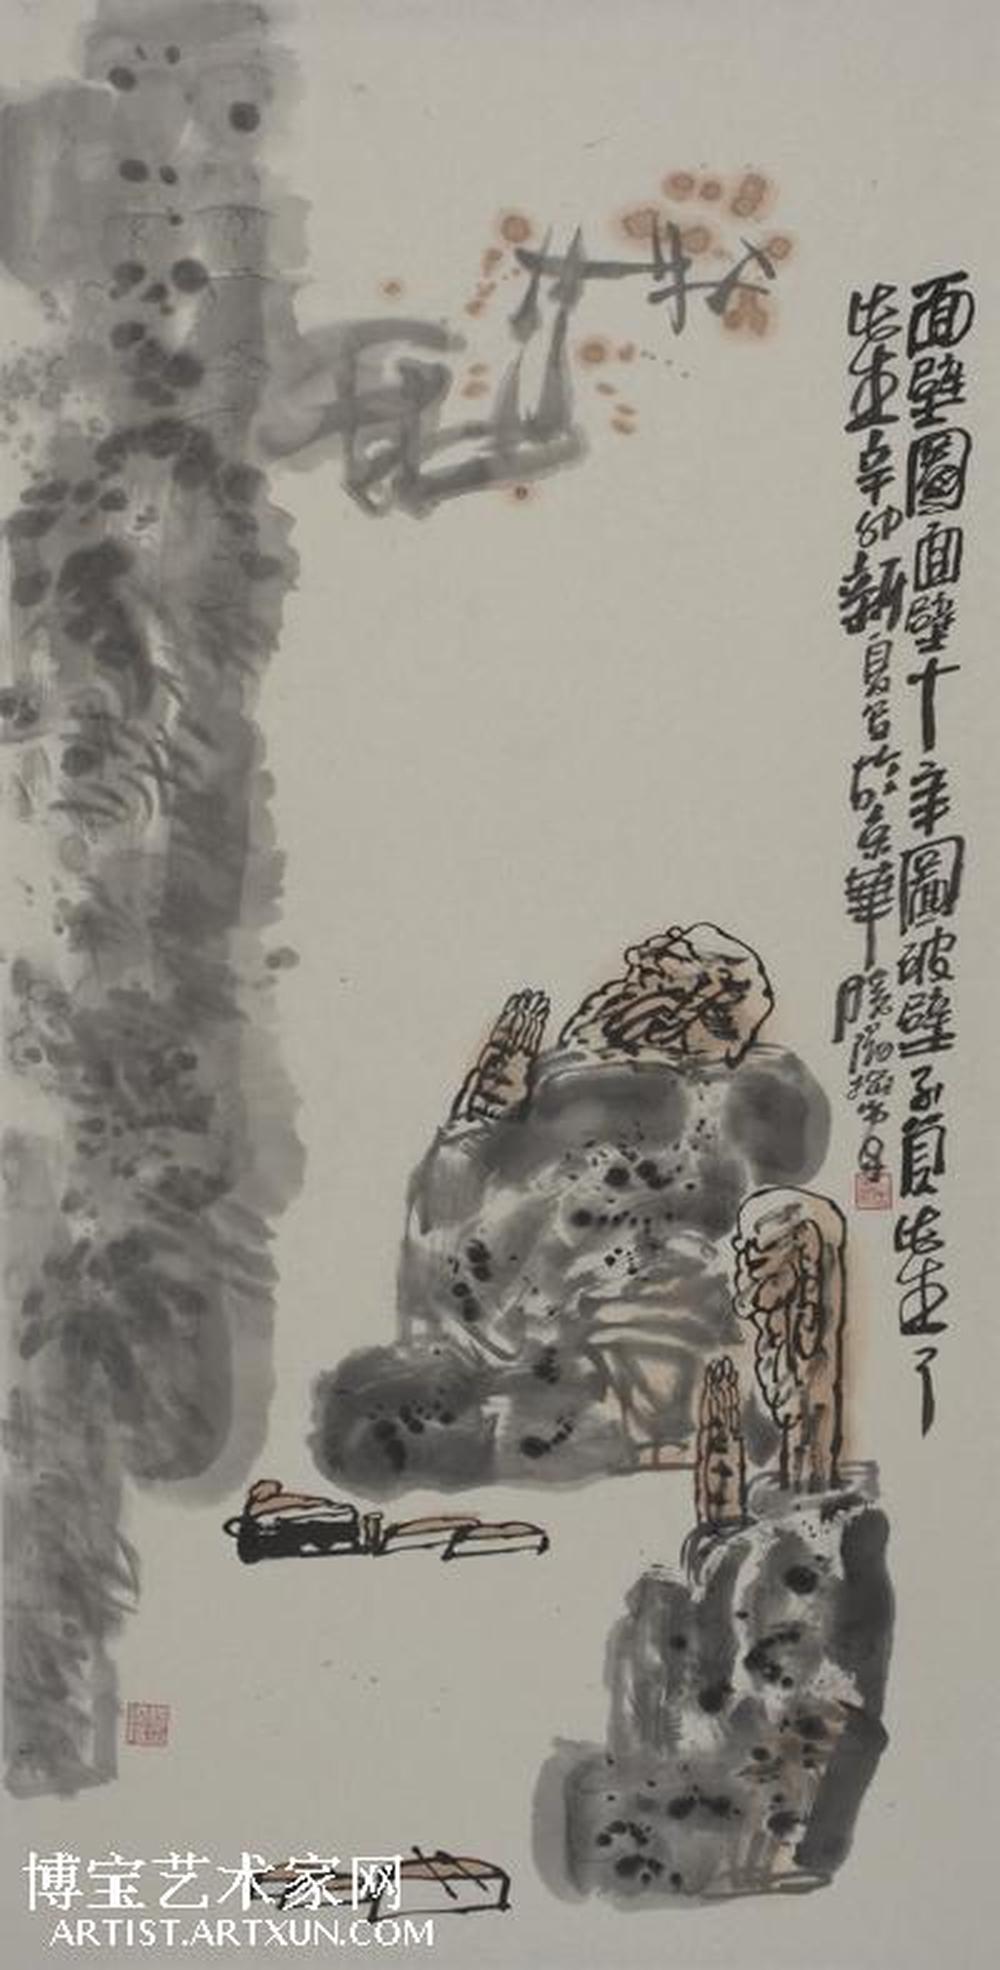 面壁圖面壁十年圖破壁不負此生了
此生辛卯新夏
於京華
博宝艺术家网
ARTIST.ARTXUN.COM